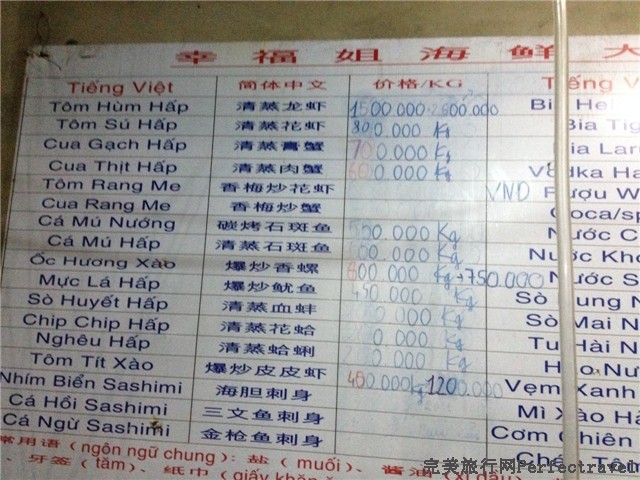 幸福姐海鲜大
Tiếng Việt 简体中文 价格/KG Tiếng V
Tôm Hùm Hấp 清蒸龙虾 1500.000-2500.000 Bia Hei
Tôm Sú Hấp 清蒸花虾 800.000 Kg Bia Tig
Cua Gạch Hấp 清蒸膏蟹 700.000 Kg Bia Laru
Cua Thịt Hấp 清蒸肉蟹 600.000 Kg Vodka Ha
Tôm Rang Me 香梅炒花虾 VND Rượu W
Cua Rang Me 香梅炒蟹 Coca/sp
Cá Mú Nướng 碳烤石斑鱼 00.000 Kg Nước C
Cá Mú Hấp 清蒸石斑鱼 00.000 Kg Nước Kho
Ốc Hương Xào 爆炒香螺 800.000 Kg 750.000 Nước S
Mực Lá Hấp 爆炒鱿鱼 450.000 Kg Sò
Sò Huyết Hấp 清蒸血蚌 0.000 Kg Sò Mai N
Chip Chip Hấp 清蒸花蛤 0.000 Kg Tu Hài N
Nghêu Hấp 清蒸蛤蜊 0.000 Kg
Tôm Tít Xào 爆炒皮皮虾 400.000kg 1200.000 Vẹm Xanh
Nhím Biển Sashimi 海胆刺身 Mì Xào Hả
Cá Hồi Sashimi 三文鱼刺身 Cơm Chiên
Cá Ngừ Sashimi 金枪鱼刺身
常用语 (ngôn ngữ chung): 盐 (muối)、酱油 (xì dầu)
、牙签 (tăm)、纸巾 (giấy
完美旅行网Perfectravel